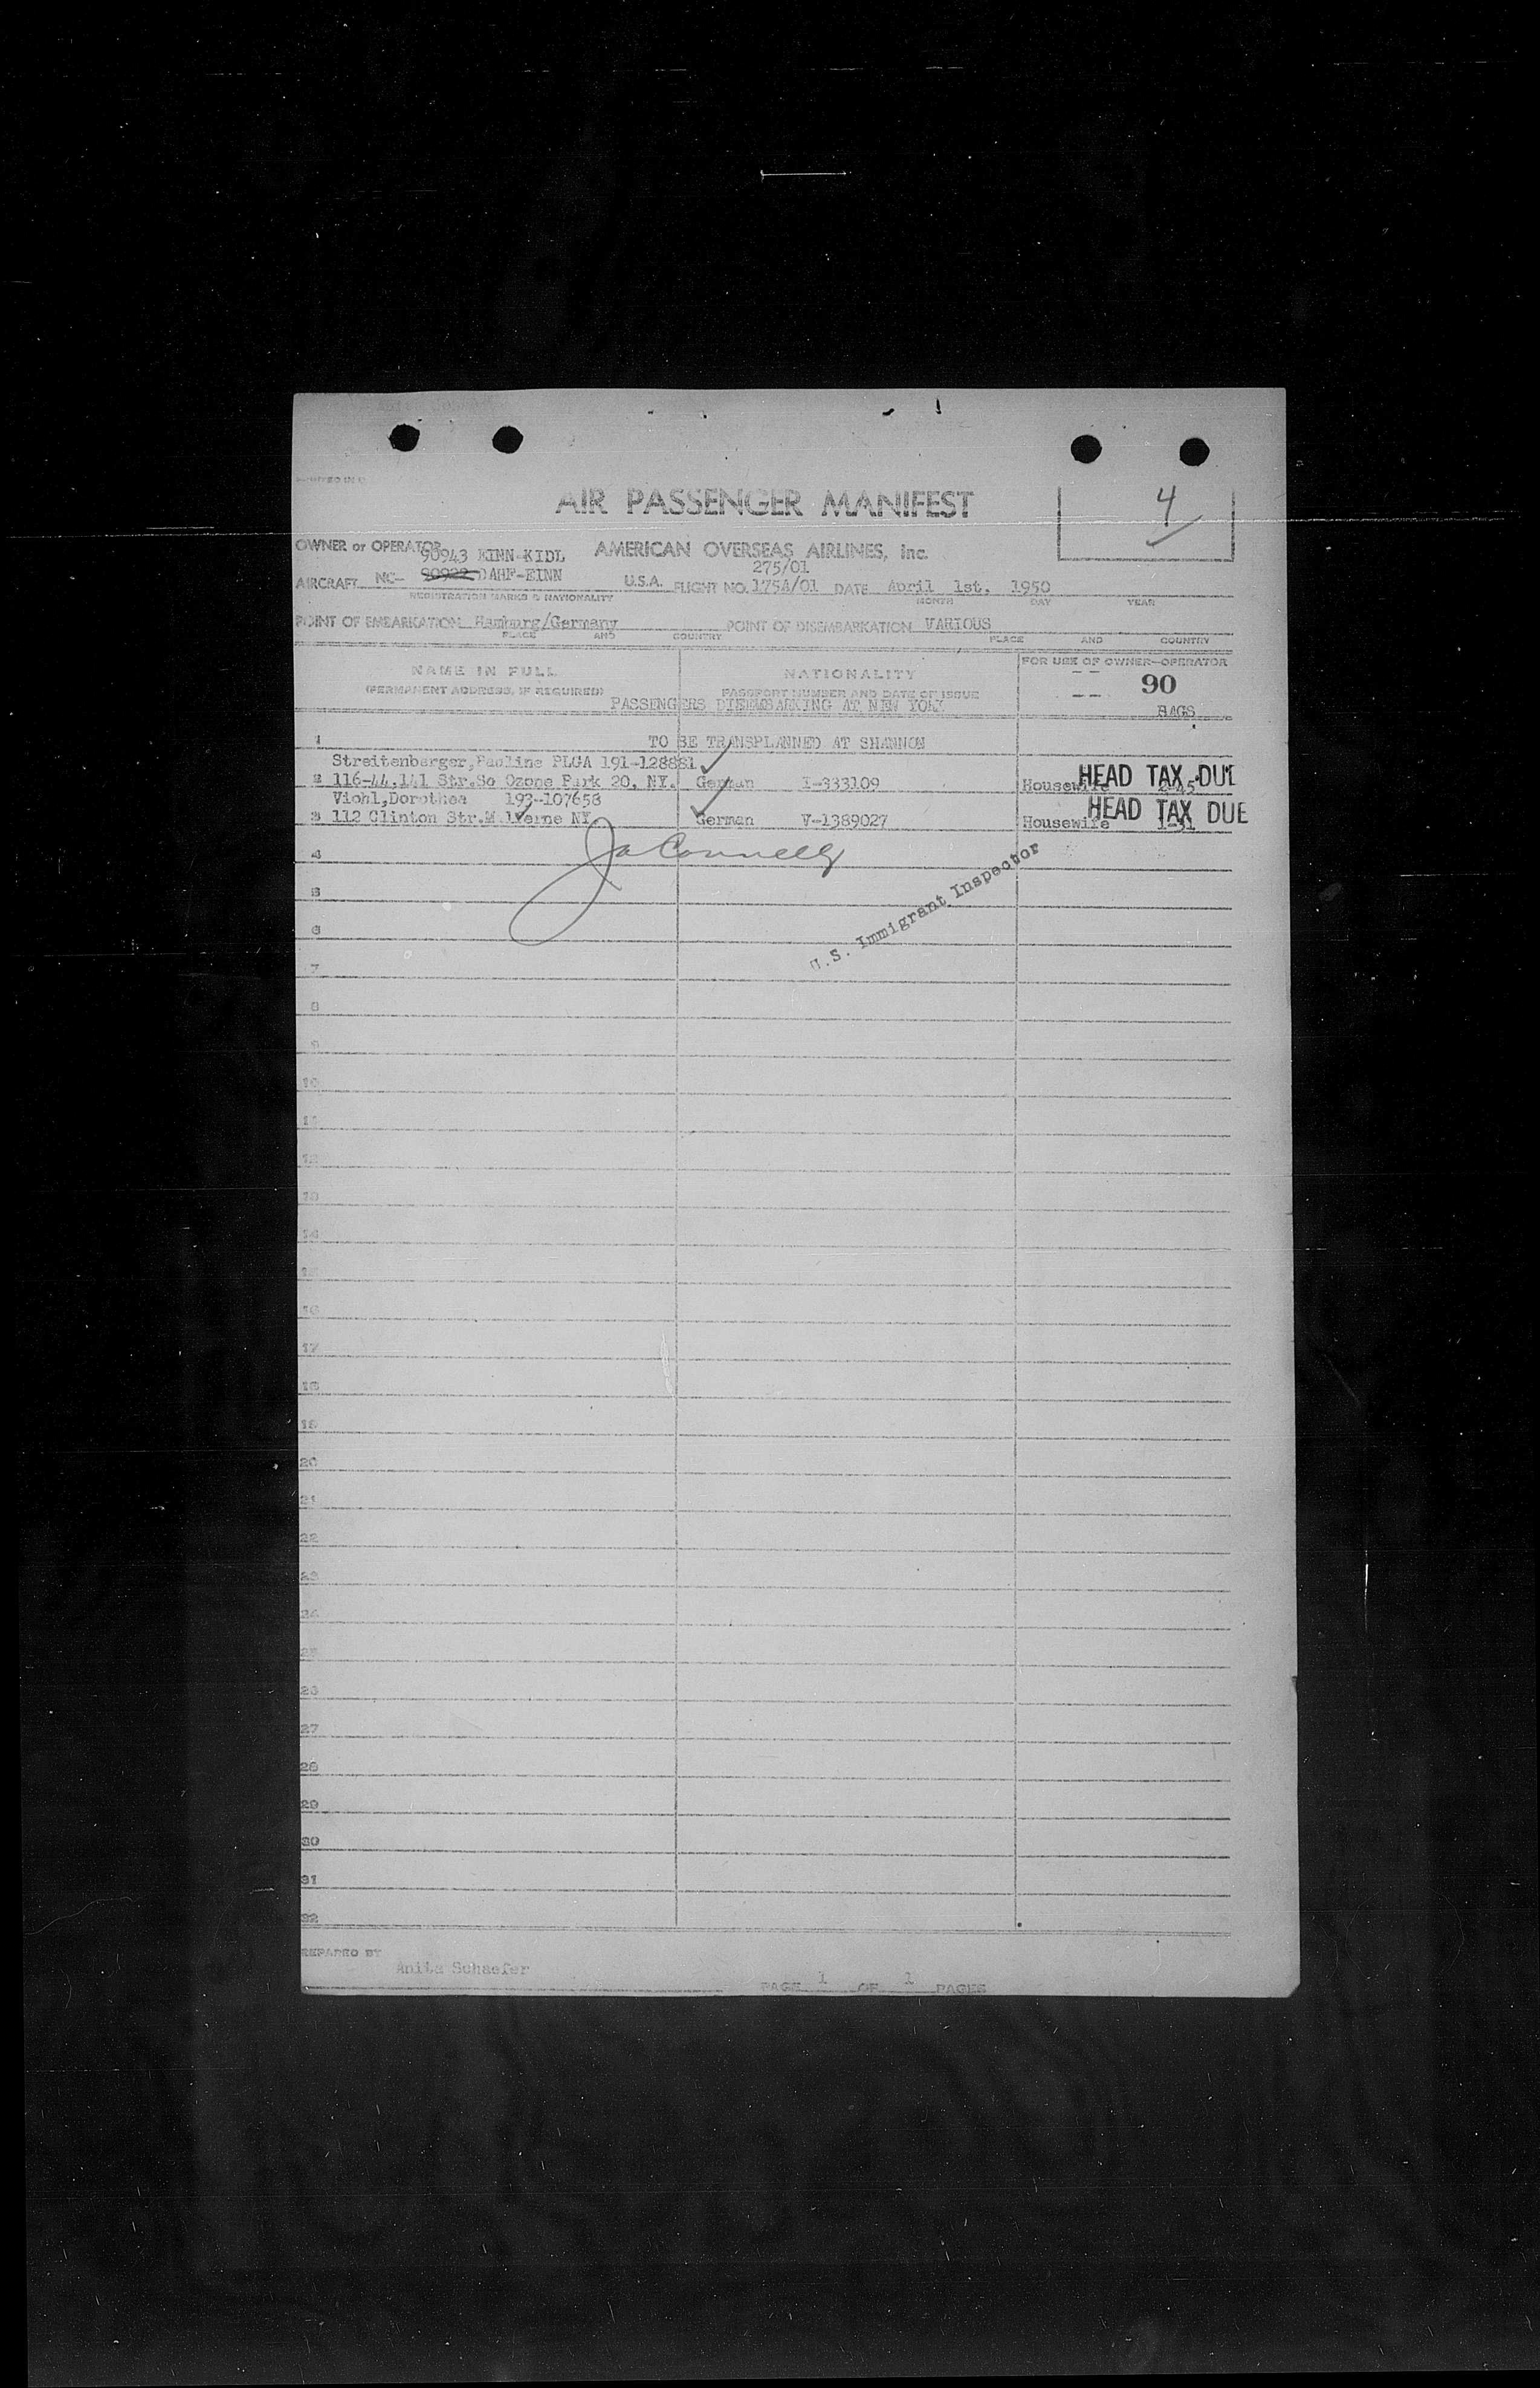 4
AIR PASSENGER MANIFEST
OWNER or OPERATOR AMERICAN OVERSEAS AIRLINES, Inc.
90943 EINN-KIDL
275/01
AIRCRAFT NC- 90922 DAHF-EINN U.S.A. FLIGHT NO. 175A/01 DATE April 1st. 1950
REGISTRATION MARKS & NATIONALITY MONTH DAY YEAR
POINT OF EMBARKATION Hamburg/Germany POINT OF DISEMBARKATION VARIOUS
PLACE AND COUNTRY PLACE AND COUNTRY
NAME IN FULL NATIONALITY FOR USE OF OWNER-OPERATOR
(PERMANENT ADDRESS, IF REQUIRED) PASSPORT NUMBER AND DATE OF ISSUE 90
PASSENGERS DISEMBARKING AT NEW YORK BAGS
1 TO BE TRANSPLANNED AT SHANNON
Streitenberger, Pauline PLGA 191-128881
2 116-44,141 Str.So Ozone Park 20, NY. German I-333109 Housewife 2-45 HEAD TAX DUE
Viohl,Dorothea 193-107658
3 112 Clinton Str.Malverne NY German V-1389027 Housewife 1-31 HEAD TAX DUE
4
U.S. Immigrant Inspector
5
6
7
8
9
10
11
12
13
14
15
16
17
18
19
20
21
22
23
24
25
26
27
28
29
30
31
32
PREPARED BY
Anita Schaefer
PAGE 1 OF 1 PAGES